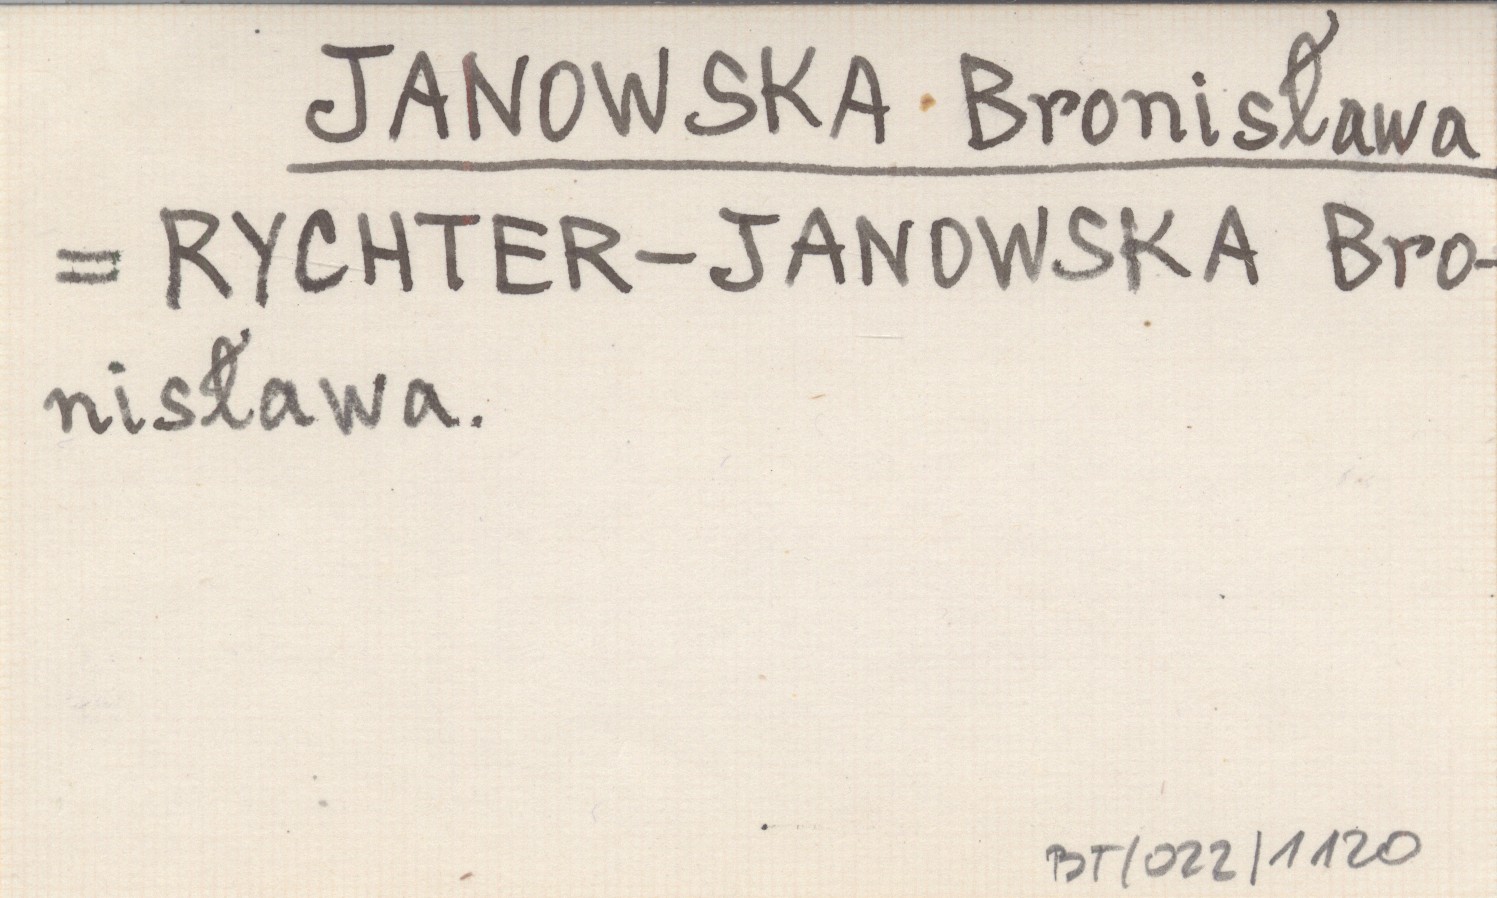 JANOWSKA Bronisława
= RYCHTER-JANOWSKA Bro-
nisława.
BT/022/1120